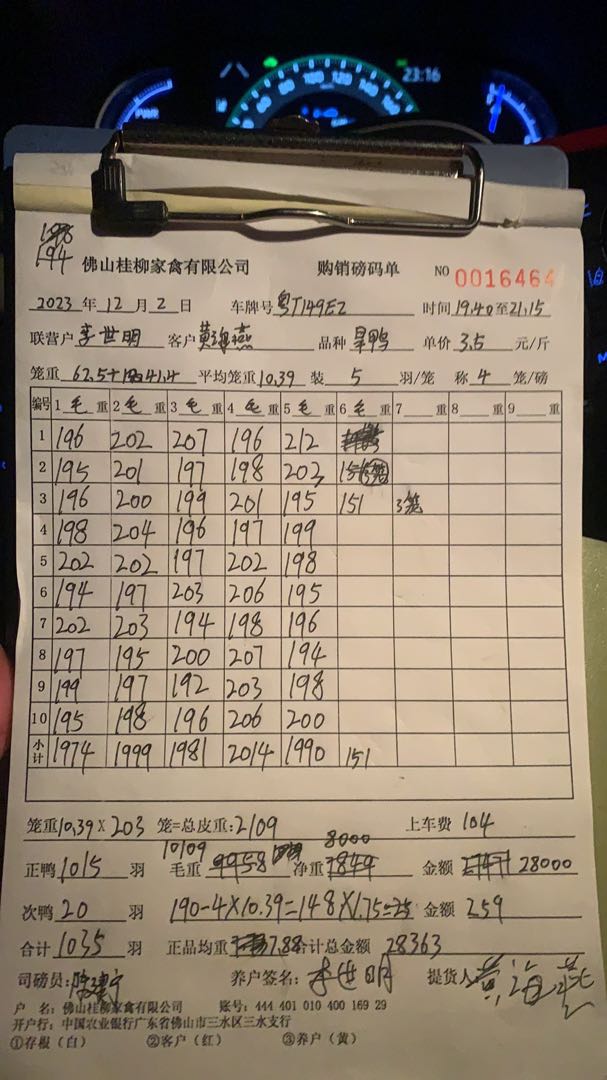 23:16
194
佛山桂柳家禽有限公司 购销磅码单 NO 0016464
2023年12月2日 车牌号 粤T149E2 时间 19.40至21.15
联营户 李世明 客户 黄海燕 品种 旱鸭 单价 3.5 元/斤
笼重 62.5+41.4 平均笼重 10.39 装 5 羽/笼 称 4 笼/磅
编号 1毛重 2毛重 3毛重 4毛重 5毛重 6毛重 7 重 8 重 9 重
1 196 202 207 196 212
2 195 201 197 198 203
3 196 200 199 201 195 151 3笼
4 198 204 196 197 199
5 202 202 197 202 198
6 194 197 203 206 195
7 202 203 194 198 196
8 197 195 200 207 194
9 199 197 192 203 198
10 195 198 196 206 200
小计 1974 1999 1981 2014 1990 151
笼重 10.39 X 203 笼=总皮重: 2109 上车费 104
10109 8000
正鸭 1015 羽 毛重 9958 净重 7849 金额 28000
次鸭 20 羽 190-4X10.39=148X1.75=25 金额 259
合计 1035 羽 正品均重 7.88 合计总金额 28363
司磅员: 养户签名: 李世明 提货人 黄海燕
户 名: 佛山桂柳家禽有限公司 账号: 444 401 010 400 169 29
开户行: 中国农业银行广东省佛山市三水区三水支行
①存根（白） ②客户（红） ③养户（黄）